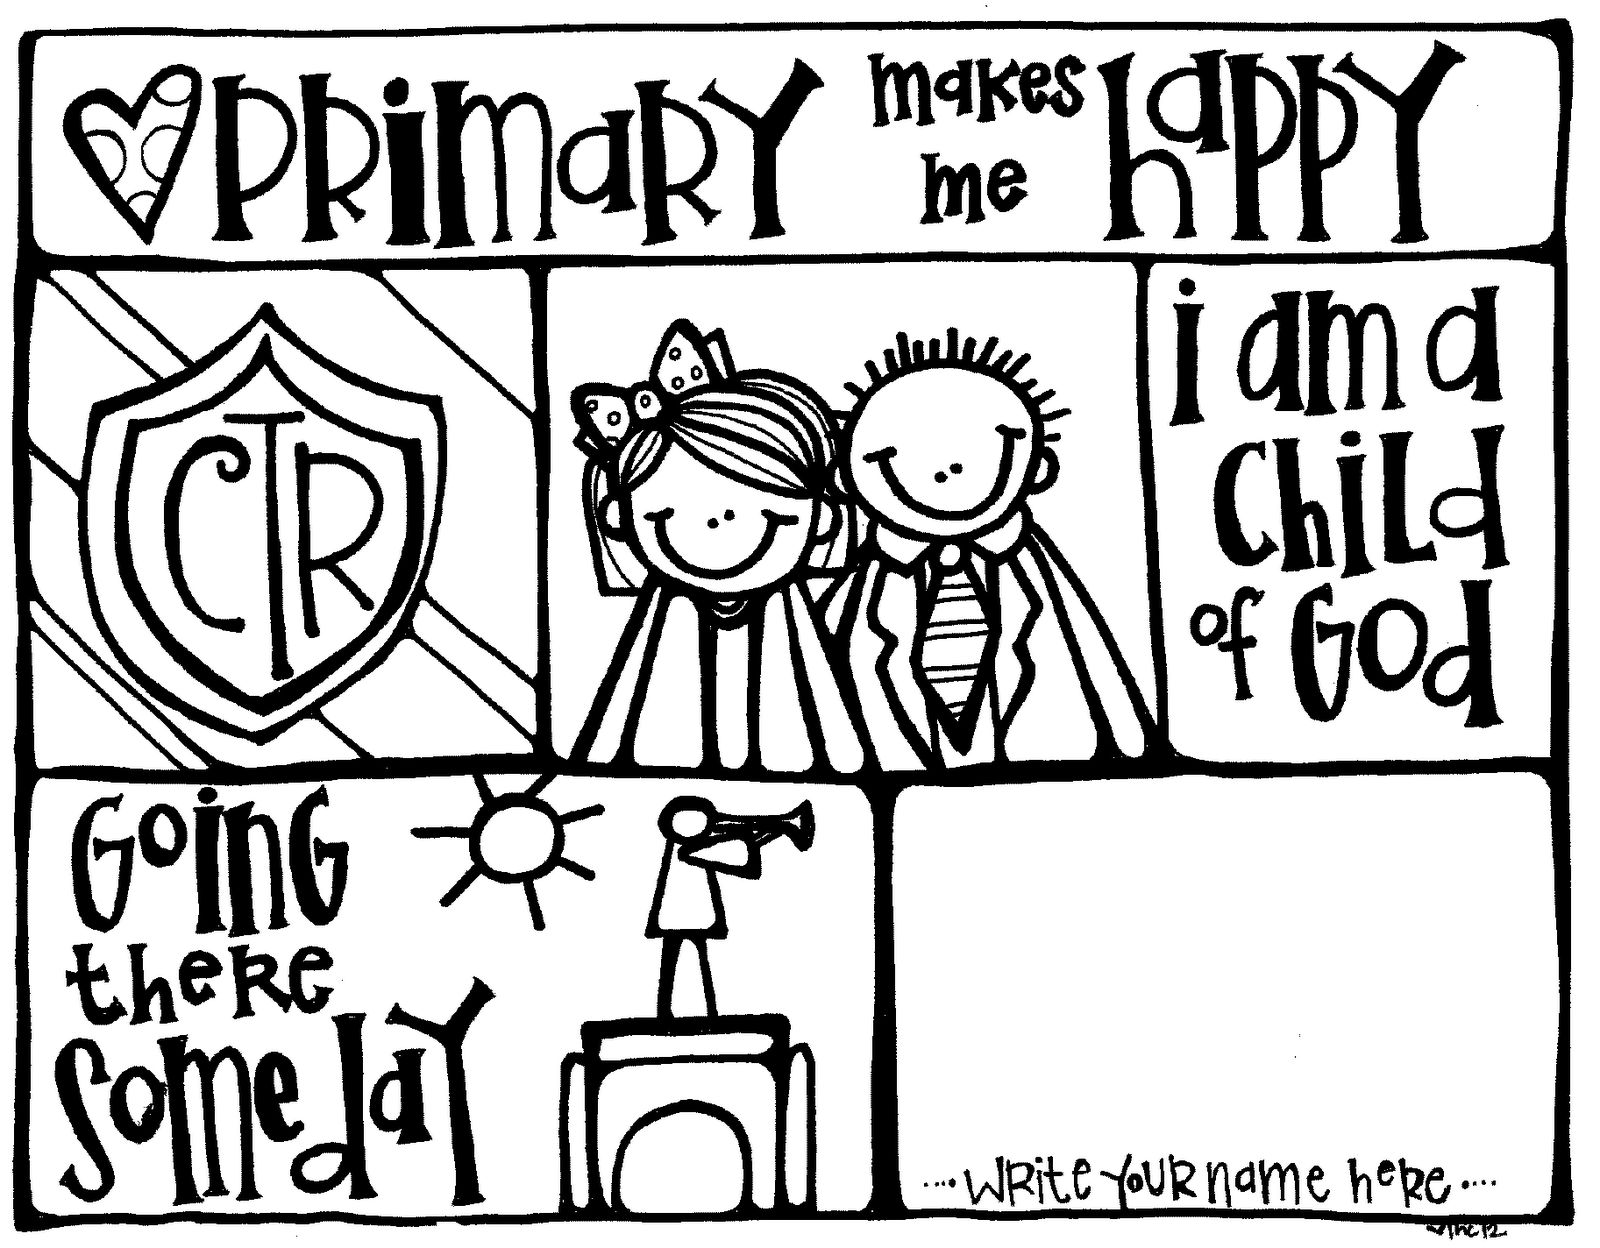 PRimaRY makes haPPY
me
CTR
i am a
ChiLd
of God
GoinG
theRe
SomedaY
....WRite YouR name heRe....